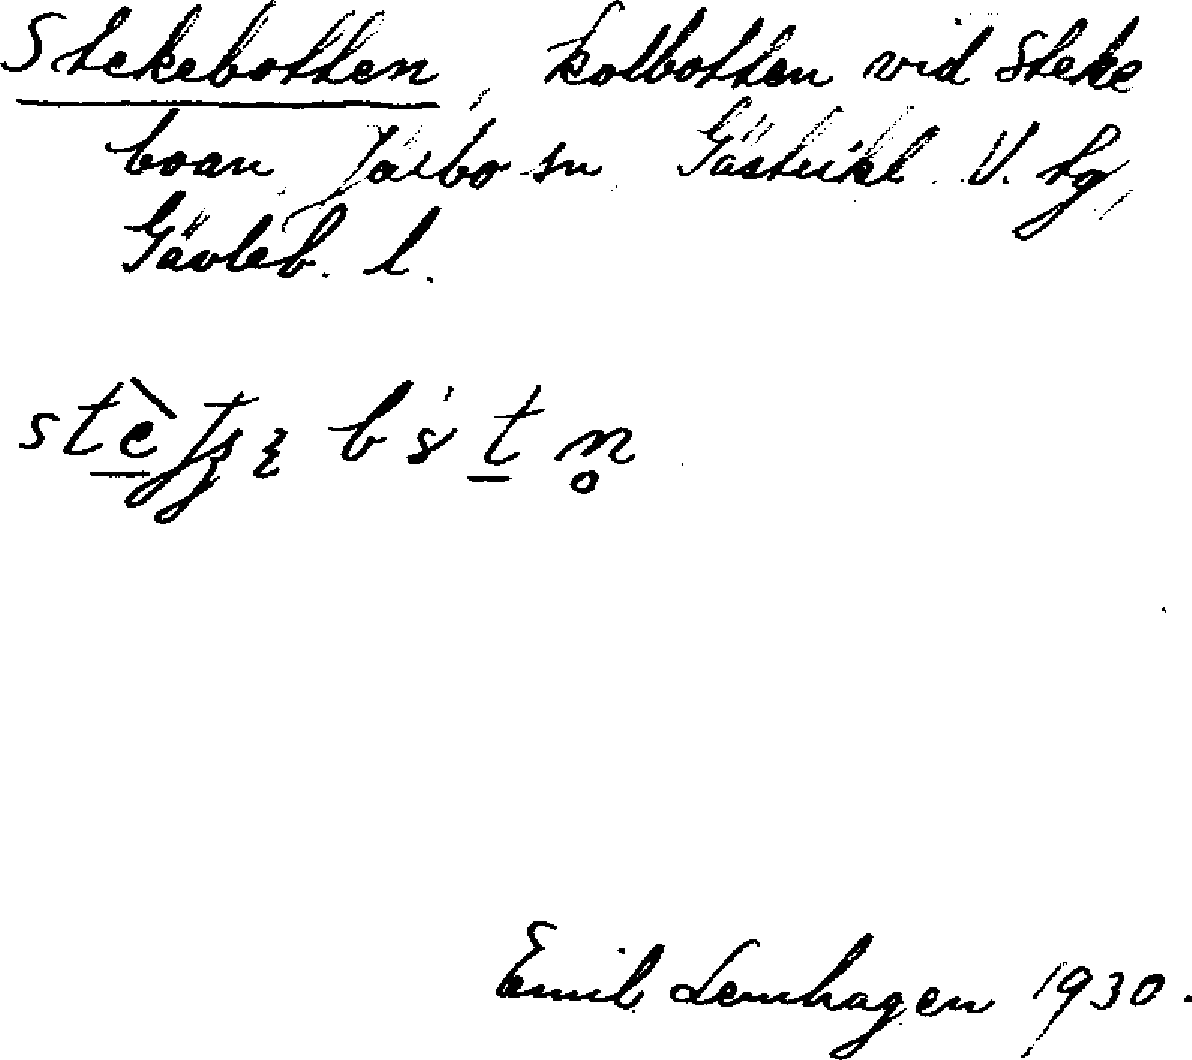 Stekebotten, kolbotten vid Steke
boan, Järbo sn, Gästrikl. V. tg,
Gävleb. l.
Emil Lemhagen 1930.